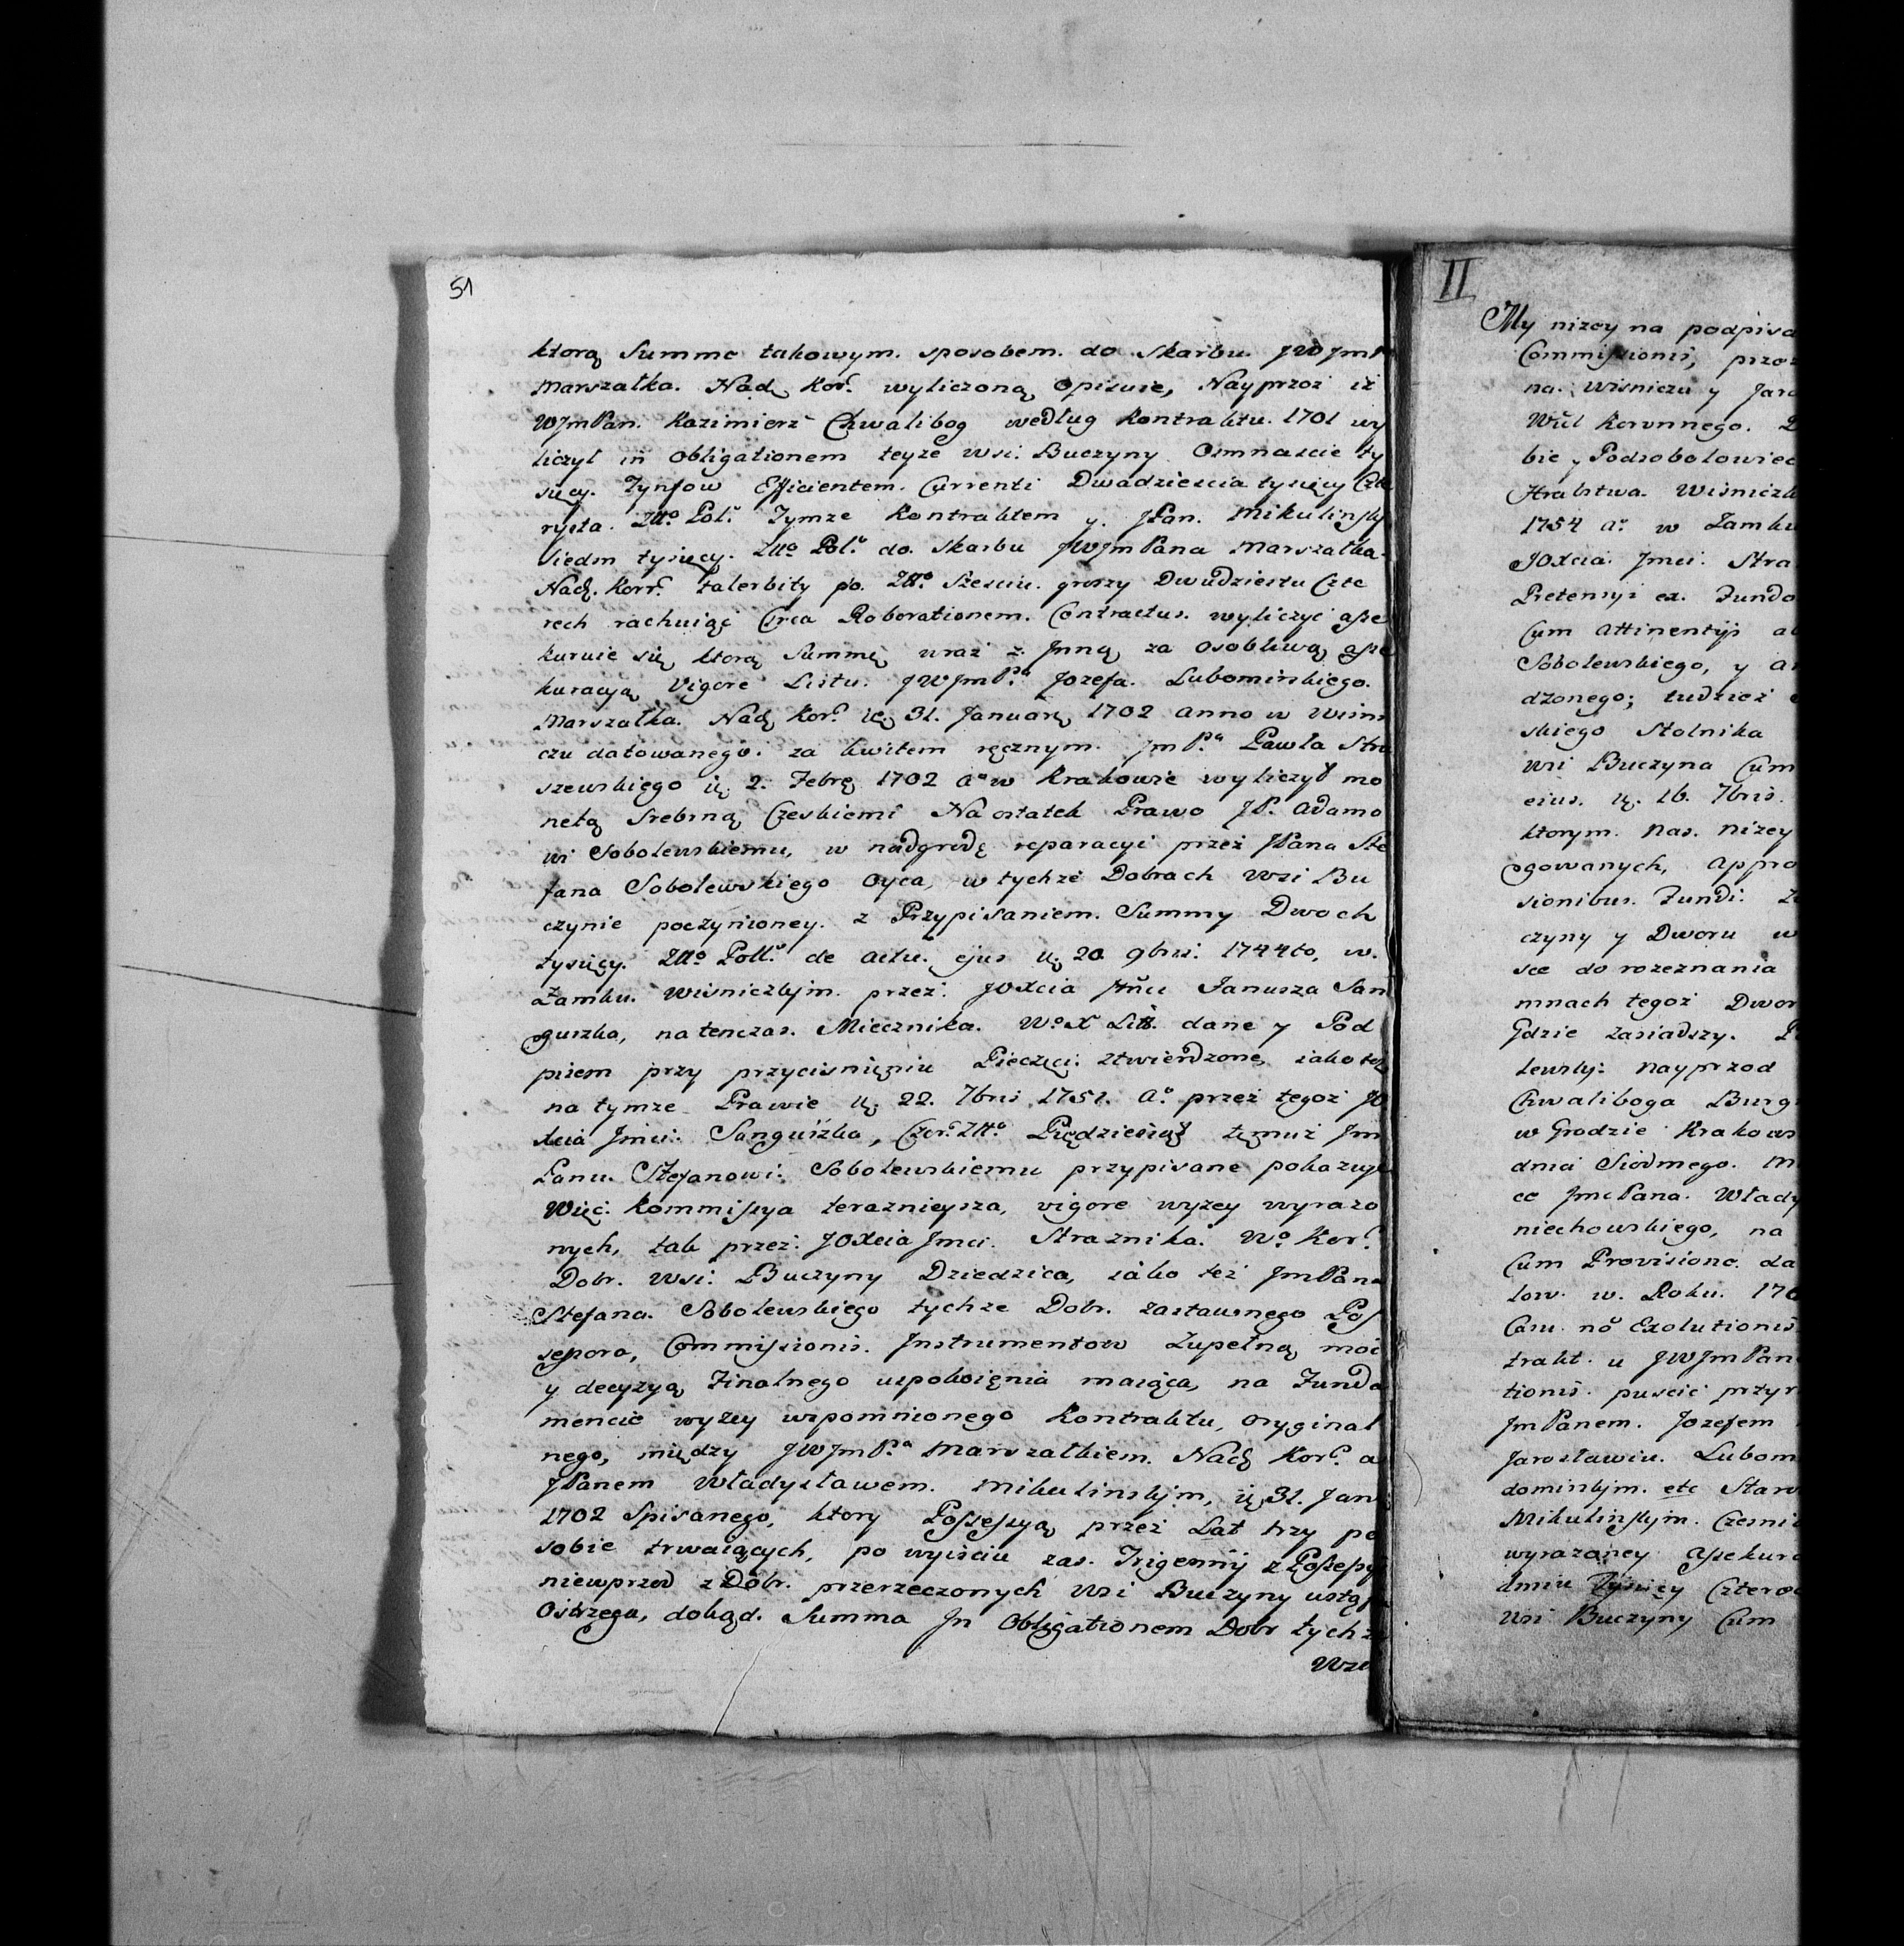 51
ktorą Summe takowym. sposobem. do Skarbu JWJmP
Marszałka. Nad. Kor. wyliczoną Opisuie, Nayprzoż iż
WJmPan. Kazimierz Chwalibog według Kontraktu. 1701 wy
liczył in Obligationem teyze wsi. Buczyny Osmnascie ty
sięcy. Tynfow Efficientem. Currenti Dwadziescia tysięcy Czte
rysta. Złło. Pol. Tymze Kontraktem y. JPan. Mikulinsky
Siedm tysięcy. Złło. Pol. do. Skarbu JWJmPana Marszałka
Nad. Korr. talerbity po. Złło. Szesciu. groszy Dwudziestu Czte
rech rachuiąc Circa Roborationem. Contractus. wyliczyć asse
kuruie się, ktorą Summę wraż z. Jnną za Osobliwą asse
kuracyą Vigore Listu. JWJmPa Jozefa. Lubomirskiego.
Marszałka. Nad. Kor. 31. January 1702 anno w Wisni
czu datowanego. za kwitem ręcznym. JmPa Pawła Stra
szewskiego 2. Febrę 1702 ao w Krakowie wyliczył mo
netą Srebrną Czeskiemi Na ostatek Prawo JP. Adamo
wi Sobolewskiemu, w nadgrodę reparacyi przeż JPana Ste
fana Sobolewskiego Oyca, w tychże Dobrach Wsi Bu
czynie poczynioney. z Przypisaniem. Summy Dwoch
tysięcy. Złło Poll. de actu. ejus 20 9bris. 1744to, w.
Zamku. Wisnickym. przeż. JOXcia Jmci Janusza San
guszka, natenczas. Miecznika. Wo X Litt. dane y Pod
pisem przy przycisnięniu Pieczęci. ztwierdzone, iako też
na tymze Prawie 22. 7bris 1751. Ao. przeż tegoż JO
Xcia Jmci. Sanguszka, Czer. Złło. Piędziesiąt temuż Jm
Panu. Stefanowi. Sobolewskiemu przypisane pokazuje
Więc. Kommissya teraznieysza, vigore wyzey wyrazo
nych, tak przeż. JOXcia Jmci. Straznika. Wo. Kor.
Dobr. Wsi. Buczyny Dziedzica, iako też JmPana
Stefana. Sobolewskiego tychze Dobr. zastawnego Pos
sessora, Commissionis. Instrumentow Zupełną moc
y decyzyą Finalnego uspokoięnia maiąca, na Funda
mencie wyzey wspomnionego Kontraktu, oryginal
nego, między JWJmPa Marszałkiem. Nad. Kor. a
JPanem Władysławem. Mikulinskym, 31. Jan
1702 Spisanego, ktory Possessyą przeż Lat trzy po
sobie trwaiących, po wyisciu zas. Trigennij z Possessy
niewprzod z Dobr. przerzeczonych Wsi Buczyny ustąp
Ostrzega, dokąd. Summa Jn Obligationem Dobr tychze
Wsi
II
My nizey na podpisa
Commissionis, przez
na. Wisniczu y Jaro
Wiel Koronnego.
bie y Podsobolowiec
Hrabstwa. Wisnickie
1754 ao. w Zamku
JOXcia Jmci. Stra
Pretensyi ex. Fundo
Cum Attinentijs a
Sobolewskiego, y a
dzonego; tudzież
skiego Stolnika
wsi Buczyna Cum
eius. 16. 7bris.
ktorym. Nas. nizey
ogowanych, Appro
sionibus. Fundi.
czyny y Dworu w
sce do rozeznania
mnach tegoż Dwor
Gdzie zasiadszy.
lewsky. nayprzod
Chwaliboga Burg
w Grodzie Krakows
dnia Siodmego. M
ec JmcPana. Włady
niechowskiego, na
Cum Provisione. da
low. w. Roku. 170
Casu. no Exolutionis
trakt. u JWJmPan
tionis. puscić przyr
JmPanem. Jozefem
Jarosławiu. Lubom
dominskym. etc Staro
Mikulinskym. Czesni
wyrazoney Assekura
dmiu Tysięcy Czteroc
wsi Buczyny Cum